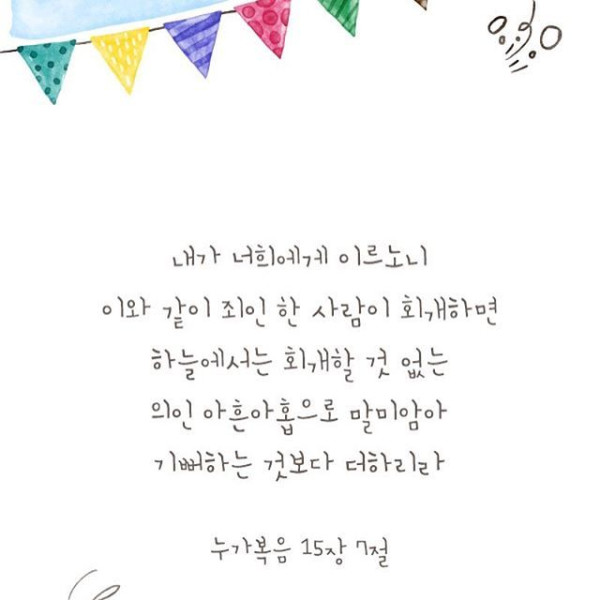 내가 너희에게 이르노니
이와 같이 죄인 한 사람이 회개하면
하늘에서는 회개할 것 없는
의인 아흔아홉으로 말미암아
기뻐하는 것보다 더하리라
누가복음 15장 7절